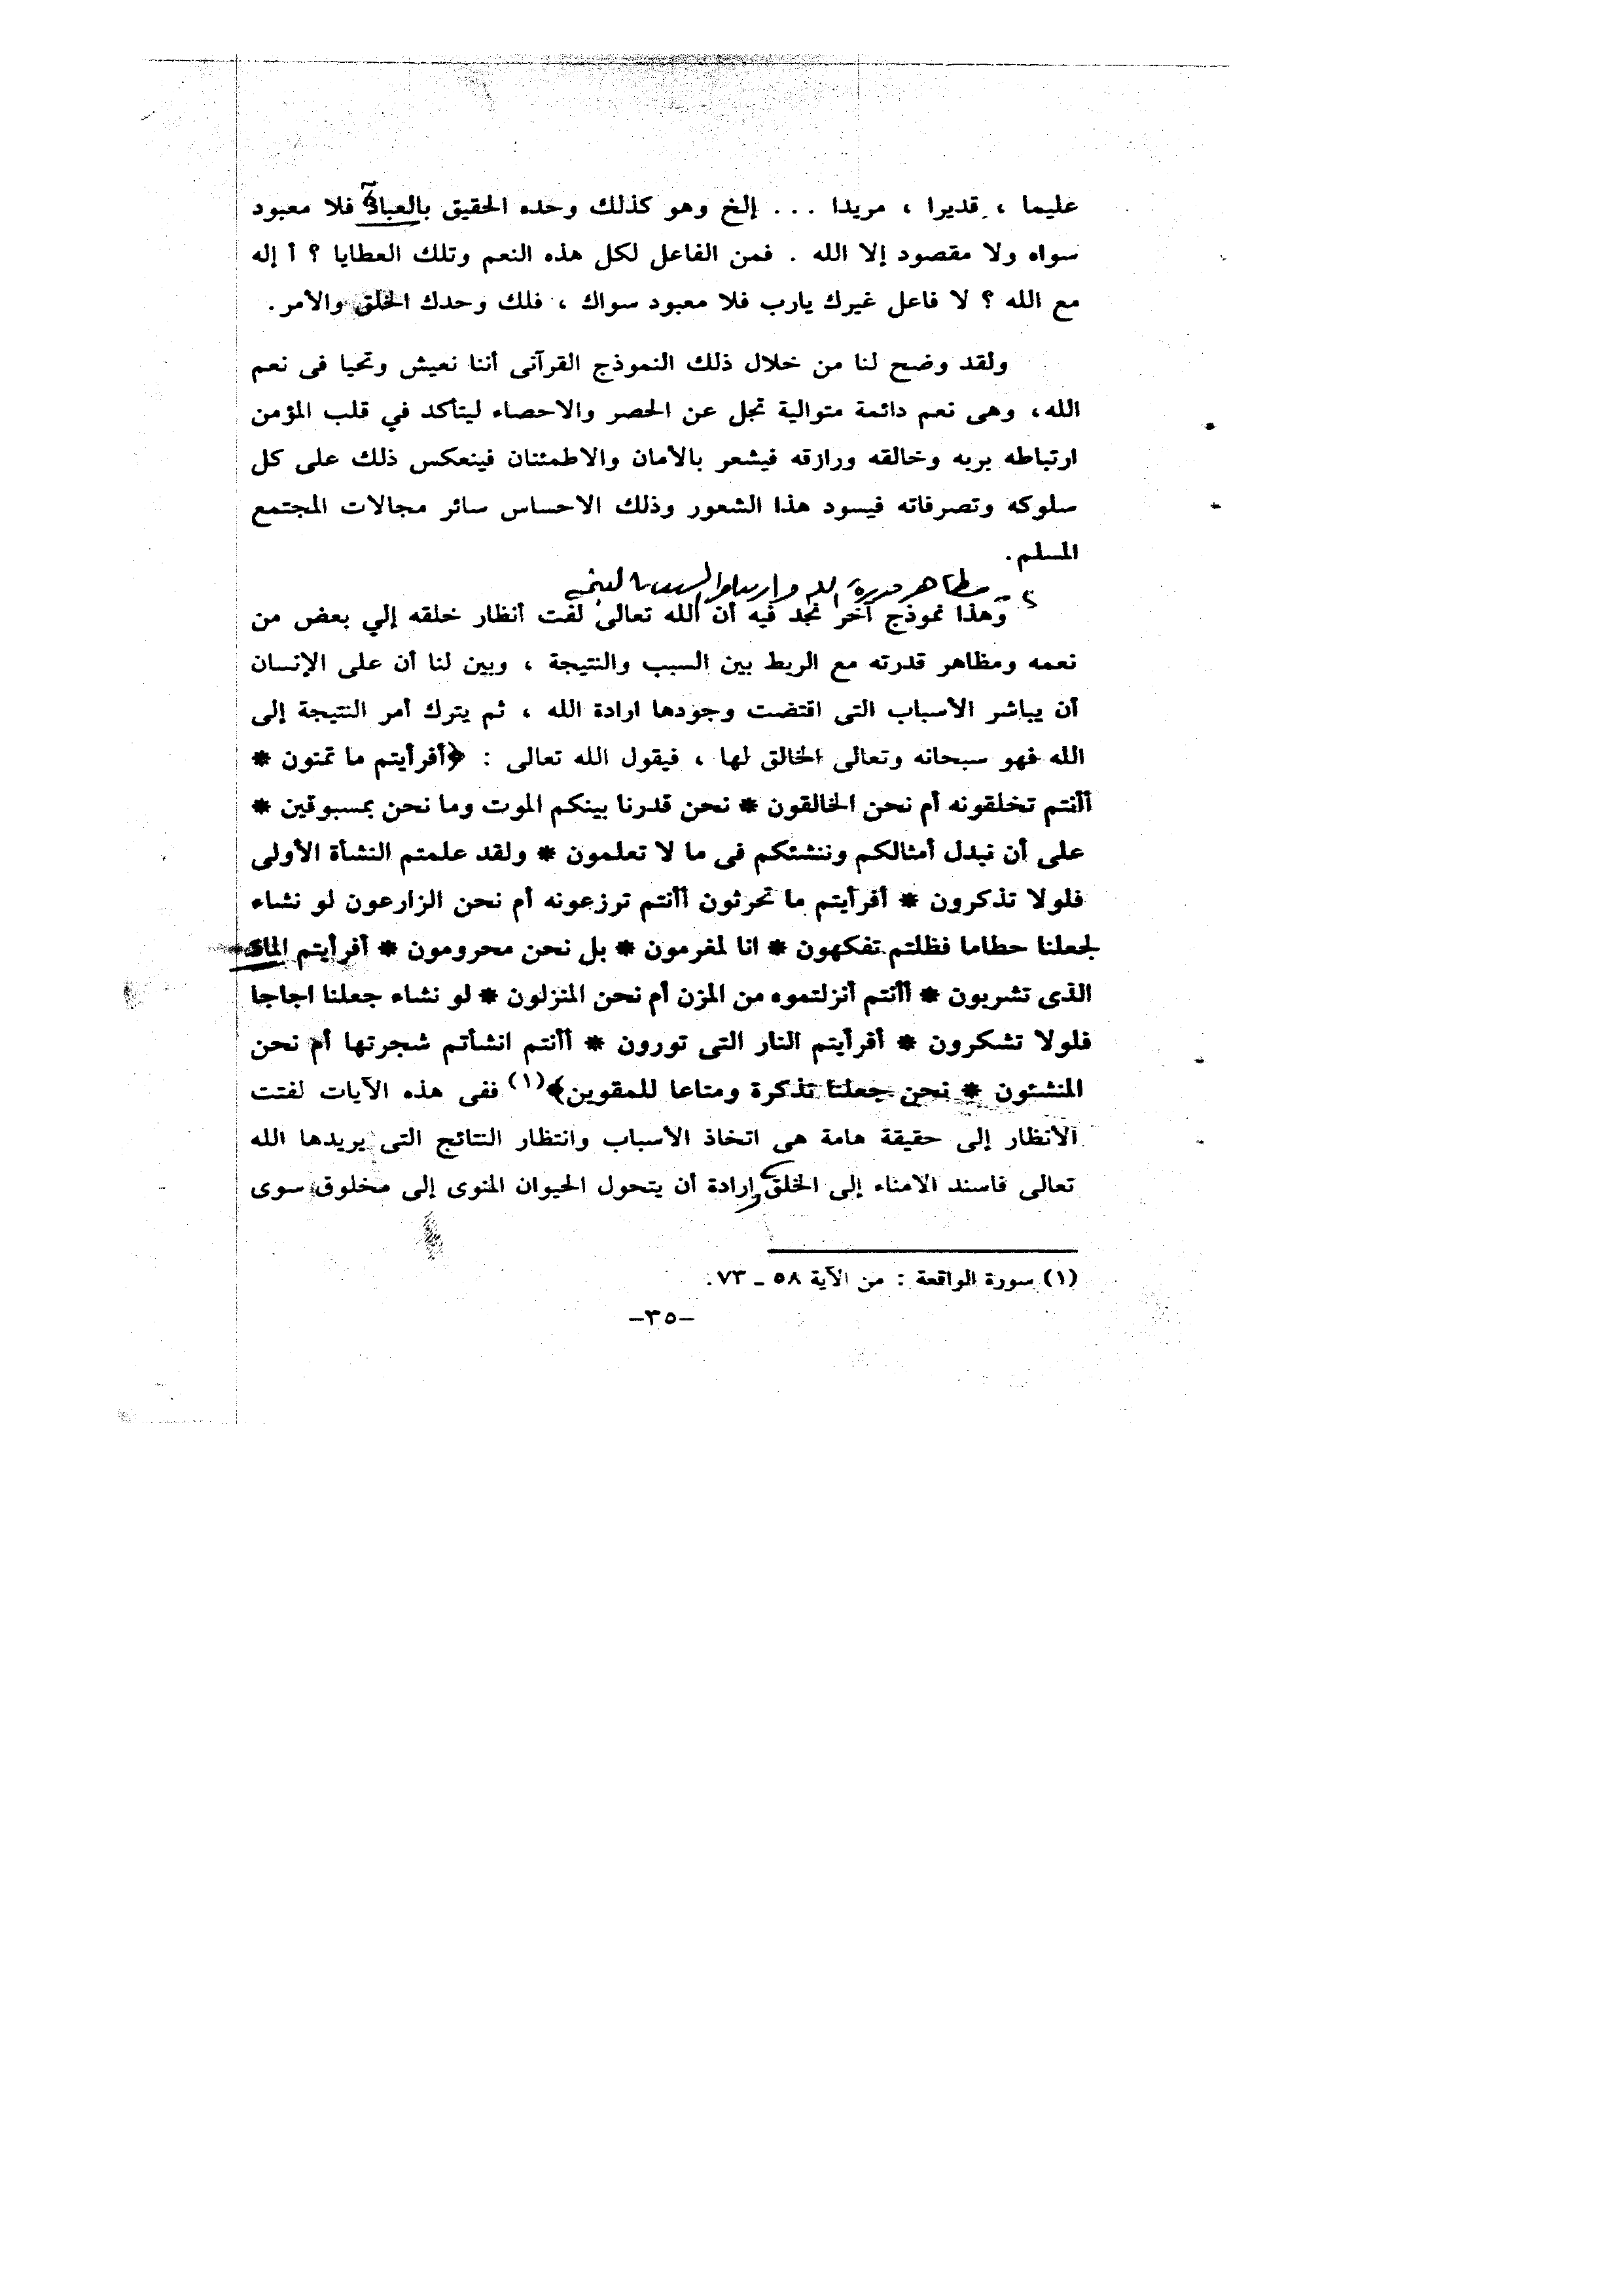 عليما ، قديرا ، مريدا ... إلخ وهو كذلك وحده الحقيق بالعبادة فلا معبود
سواه ولا مقصود إلا الله . فمن الفاعل لكل هذه النعم وتلك العطايا ؟ أ إله
مع الله ؟ لا فاعل غيرك يارب فلا معبود سواك ، فلك وحدك الخلق والأمر.
ولقد وضح لنا من خلال ذلك النموذج القرآنى أننا نعيش ونحيا فى نعم
الله، وهى نعم دائمة متوالية تجل عن الحصر والاحصاء ليتأكد في قلب المؤمن
ارتباطه بربه وخالقه ورازقه فيشعر بالأمان والاطمئنان فينعكس ذلك على كل
سلوكه وتصرفاته فيسود هذا الشعور وذلك الاحساس سائر مجالات المجتمع
المسلم.
٢ - مظاهر قدرة الله وارتباط السبب بالنتيجة
وهذا نموذج آخر نجد فيه أن الله تعالى لفت أنظار خلقه إلي بعض من
نعمه ومظاهر قدرته مع الربط بين السبب والنتيجة ، وبين لنا أن على الإنسان
أن يباشر الأسباب التى اقتضت وجودها ارادة الله ، ثم يترك أمر النتيجة إلى
الله فهو سبحانه وتعالى الخالق لها ، فيقول الله تعالى : ﴿أفرأيتم ما تمنون *
أأنتم تخلقونه أم نحن الخالقون * نحن قدرنا بينكم الموت وما نحن بمسبوقين *
على أن نبدل أمثالكم وننشئكم فى ما لا تعلمون * ولقد علمتم النشأة الأولى
فلولا تذكرون * أفرأيتم ما تحرثون أأنتم ترزعونه أم نحن الزارعون لو نشاء
لجعلنا حطاما فظلتم تفكهون * انا لمغرمون * بل نحن محرومون * أفرأيتم الماء
الذى تشربون * أأنتم أنزلتموه من المزن أم نحن المنزلون * لو نشاء جعلنا اجاجا
فلولا تشكرون * أفرأيتم النار التى تورون * أأنتم انشأتم شجرتها أم نحن
المنشئون * نحن جعلنا تذكرة ومتاعا للمقوين﴾(١) ففى هذه الآيات لفتت
الأنظار إلى حقيقة هامة هى اتخاذ الأسباب وانتظار النتائج التى يريدها الله
تعالى فاسند الامناء إلى الخلق وإرادة أن يتحول الحيوان المنوى إلى مخلوق سوى
(١) سورة الواقعة : من الآية ٥٨ ـ ٧٣.
-٣٥-